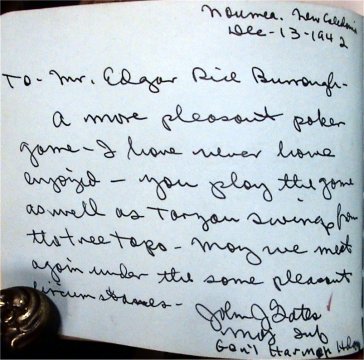 Noumea. New Caledonia
Dec-13-1942
To- Mr. Edgar Rice Burrough-
A more pleasant poker
game - I have never have
enjoyed - you play the game
as well as Tarzan swings from
the tree tops - may we meet
again under the same pleasant
circumstances -
John J Gates
Maj Inf
Gen'l Harmon Hdq